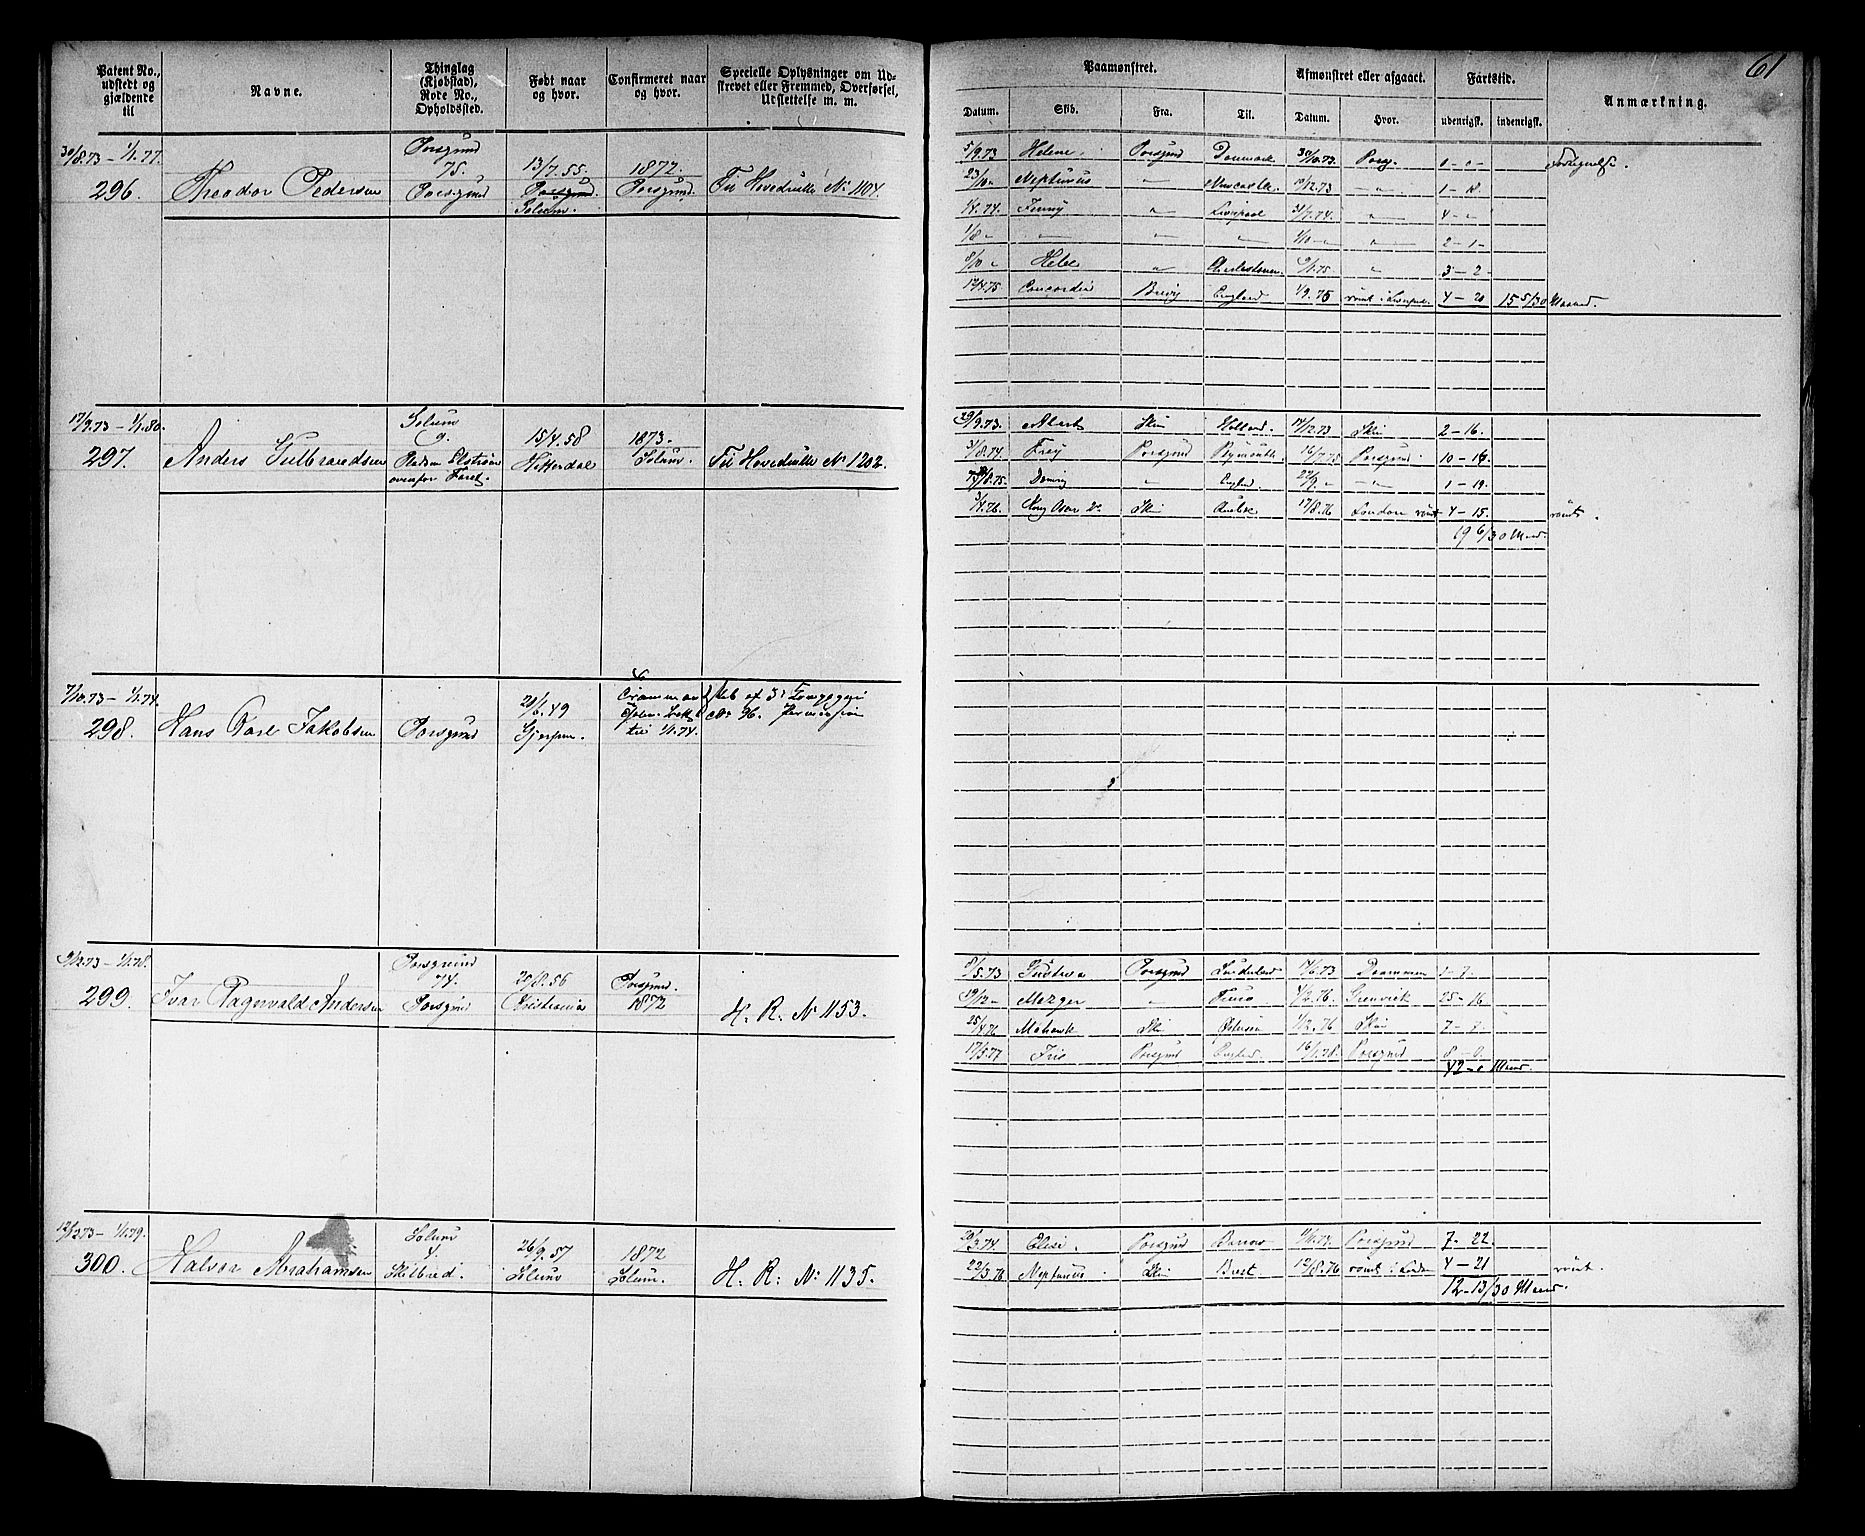 61
Patent No., udstedt og gjældende til
Navne.
Thinglag (Kjøbstad), Rode No., Opholdssted.
Født naar og hvor.
Confirmeret naar og hvor.
Specielle Oplysninger om Udskrevet eller Fremmed, Overførsel, Udslettelse m. m.
Paamønstret.
Afmønstret eller afgaaet.
Fartstid.
Anmærkning.
Datum.
Skib.
Fra.
Til.
Datum.
Hvor.
udenrigsk.
indenrigsk.
30/8.73 – 1/1.77.
296. Theodor Pedersen
Porsgrund
75.
Porsgrund
13/7.55.
Solum.
1872.
Porsgrund
Til Hovedrulle No 1104.
5/9.73 Helene. Porsgrund Danmark 30/10.73 Porsg.
23/10 " Neptunus " Newcastle 1 – 18.
1/4.74. Fenny " Liverpool 31/7.74. " 4 – "
1/8 " " " " 1/10 – " " 2 – 1 –
8/10 " Hebe " 3 – 2
Concordia Brevig England 1/9.75 rømt i Liverpool 4 – 20 15 5/30 Maaned.
17/9.73 – 1/1.80.
297. Anders Gulbrandsen
Solum
9.
ovenfor Faret.
15/4.58
Hitterdal
1873.
Solum.
Til Hovedrulle No 1202.
29/9.73. Skien Holland. 17/12.73 Skien 2 – 16.
3/8.74. Frey Porsgrund Plymouth 16/7.75 Porsgrund 10 – 16
" England. 22/9 " – " – 1 – 19.
3/4.76. Kong Oscar 2den Skien Quebec 17/8.76 London rømt 4 – 15. rømt.
19 6/30 Maand.
7/10.73 – 1/1.74.
298. Hans Carl Jakobsen
Porsgrund
20/6.49
Gjerpen.
til 1/1.74.
No 36. Permission
9/12.73 – 1/1.78.
299. Ivar Ragnvald Andersen
Porsgrund
74.
Porsgrund
25/8.56
Christiania
Porsgrund.
1872
H. R. No 1153.
8/5.73 Gustava Porsgrund Sunderland Drammen 1 – 7.
19/12 – Mezger " Truro 4/2.76. Grenvick 25 – 16
25/4.76 Mohawk Skien Østersøen Skien 7 – 7.
17/5.77 Iris Porsgrund England. 16/1.78. Porsgrund 8 – 0.
42 – 0 Maand.
12/12.73 – 1/1.79.
300. Halvor Abrahamsen
Solum
4.
Skilbred.
26/9.57
Solum
1872
Solum.
H. R. No 1135.
20/3.74. Elise. Porsgrund Porsgrund 7 – 22.
22/3.76 Neptunus Skien Brest 12/8.76 rømt i London 4 – 21 rømt.
12 – 13/30 Maand.